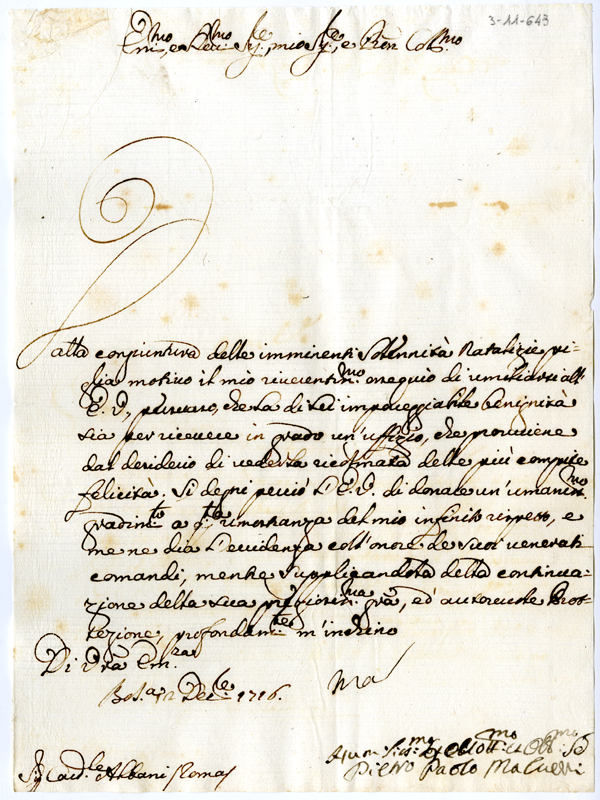 3-11-643
Em.mo, e Rev.mo Sig.re, mio Sig.re, e Pron Coll.mo
Dalla congiuntura delle imminenti Solennità Natalizie pi-
glia motivo il mio riverentis.mo ossequio di umiliarsi all'
E. V., persuaso, che la di Lei impareggiabile benignità
sia per ricevere in grado un'uffizio, che proviene
dal desiderio di vederla ricolmata delle più compite
felicità. Si degni perciò l'E. V. di donare un'umaniss.mo
gradim.to a q.sta rimostranza del mio infinito rispetto, e
me ne dia l'evidenza coll'onore de suoi venerati
comandi, mentre supplicandola della continua-
zione della sua pregiatis.ma grã, ed'autorevole Prot-
tezione, profondam.te m'inchino
Di Vrã Em.za
Bol.a 12 Dec.bre 1716.
Sig. Card.le Albani Roma
Pietro Paolo